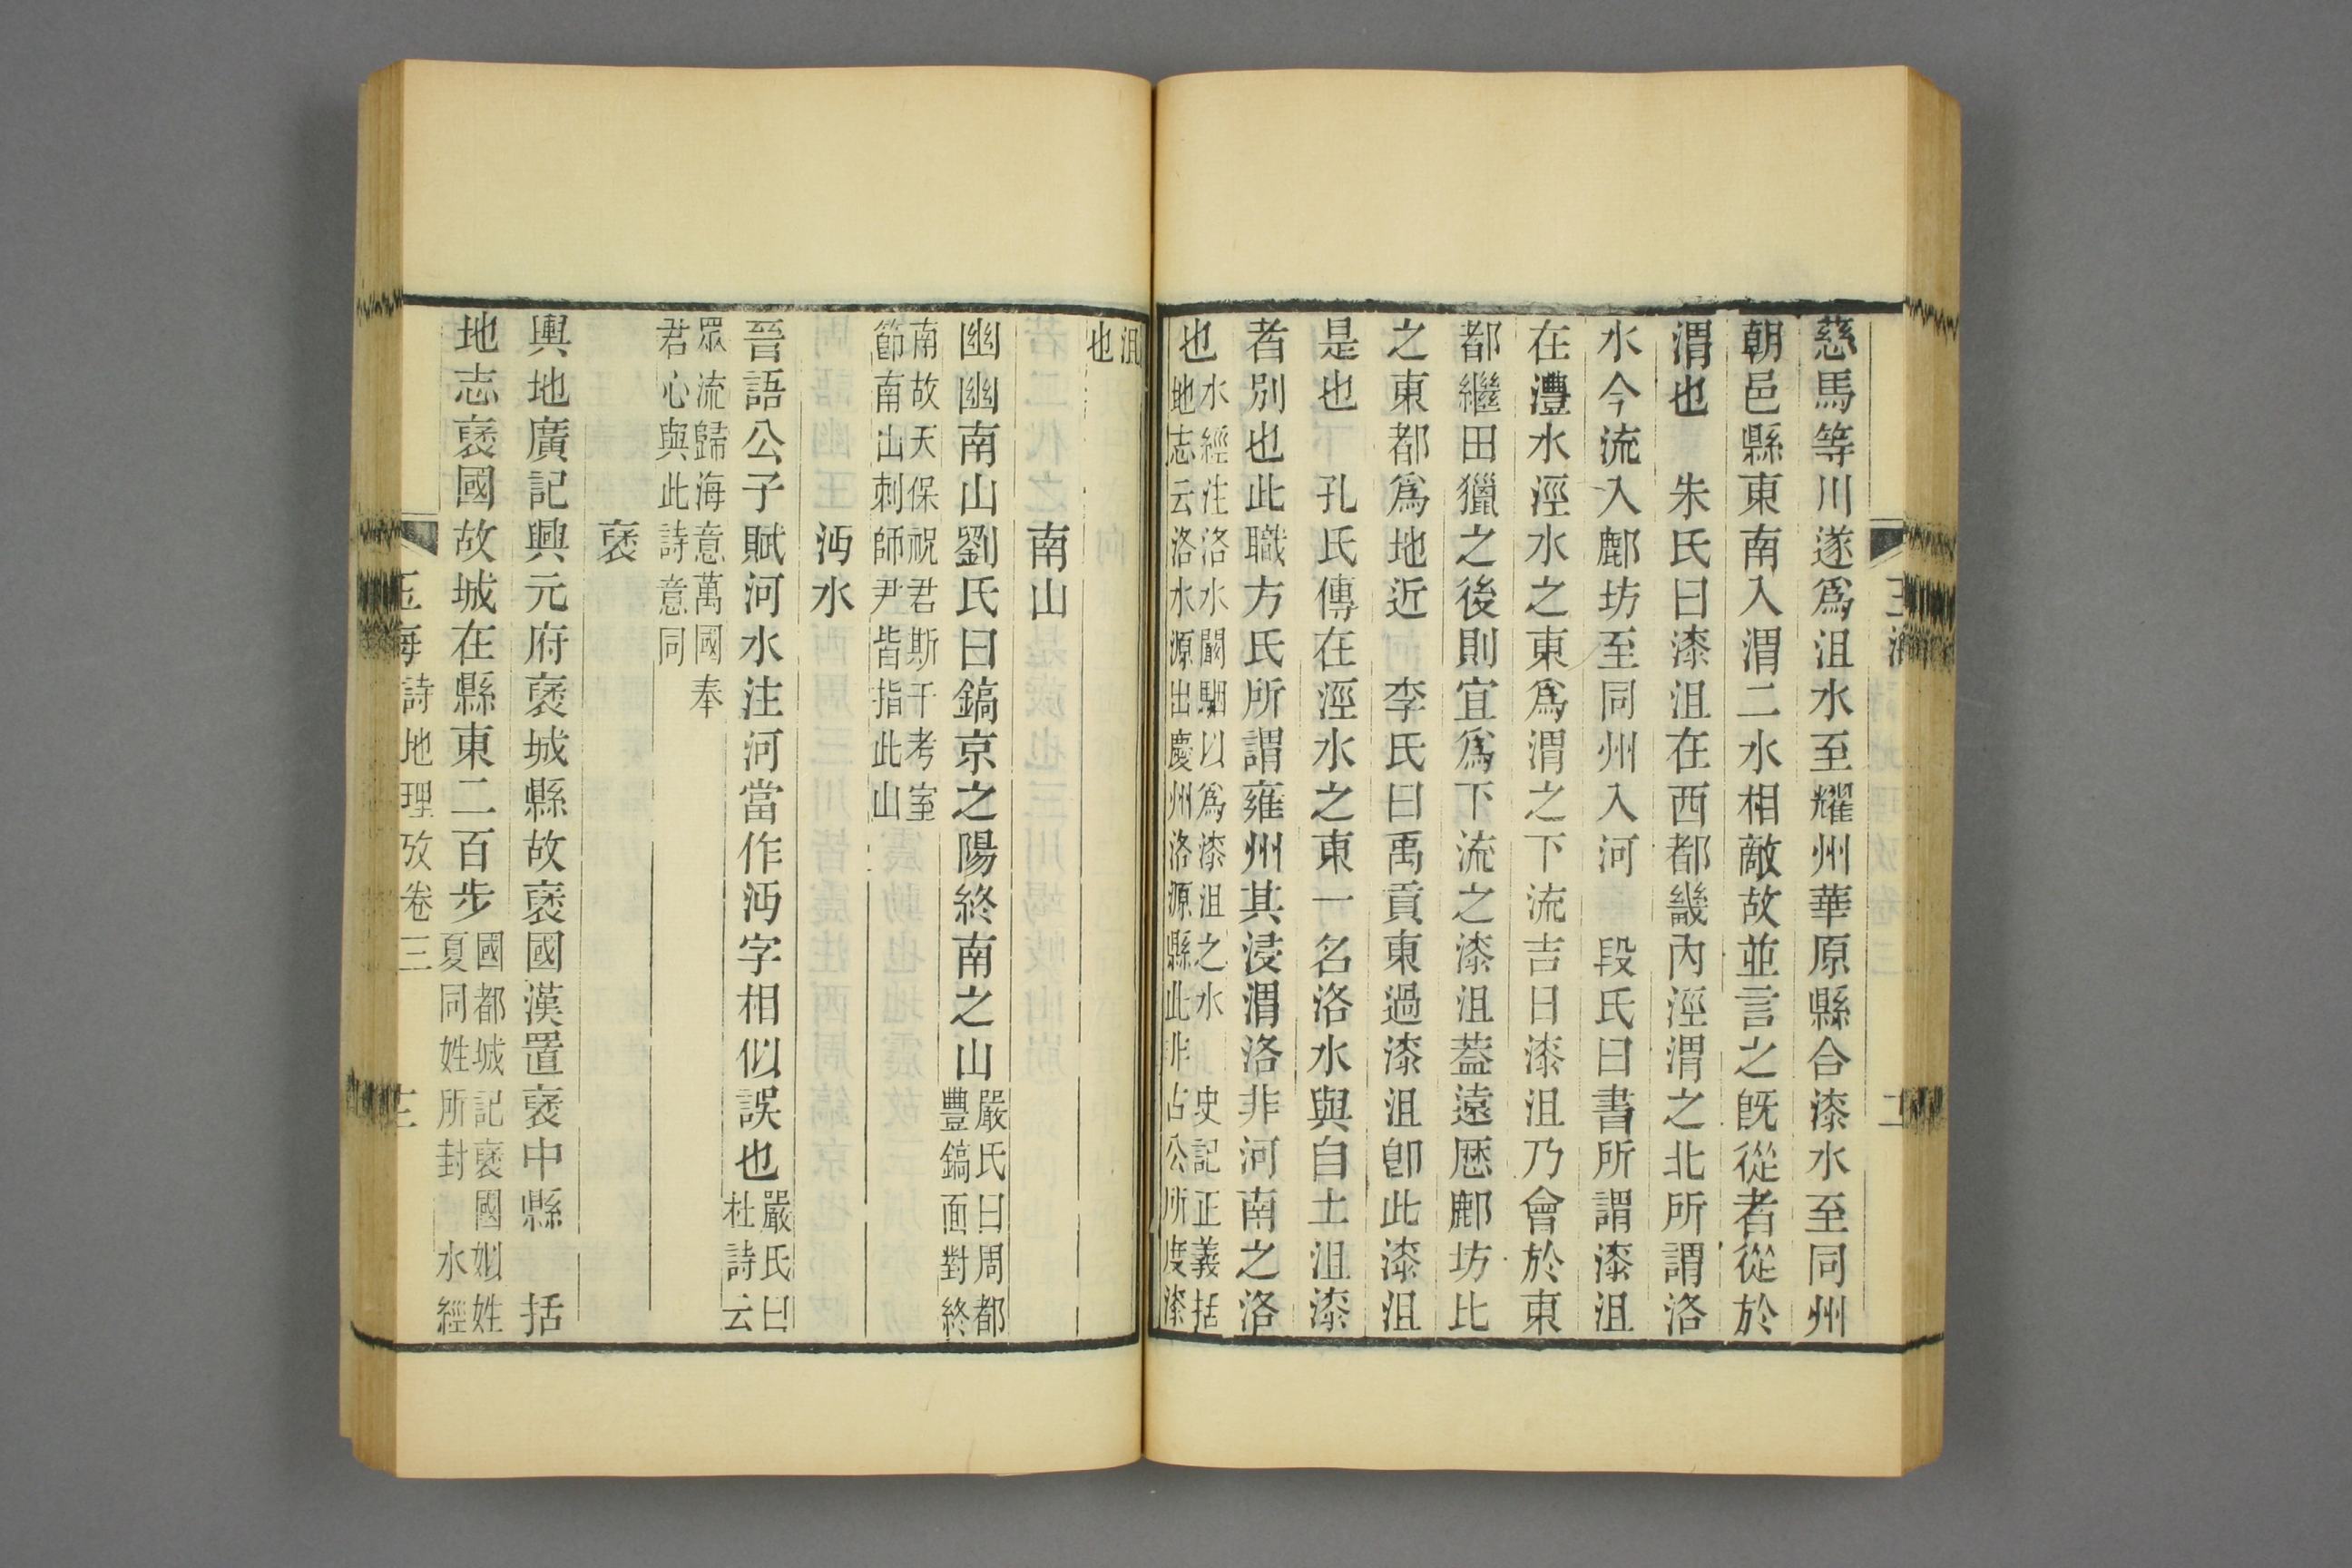 慈馬等川遂爲沮水至耀州華原縣合漆水至同州
朝邑縣東南入渭二水相敵故並言之旣從者從於
渭也　朱氏曰漆沮在西都畿內涇渭之北所謂洛
水今流入鄜坊至同州入河　段氏曰書所謂漆沮
在灃水涇水之東爲渭之下流吉日漆沮乃會於東
都繼田獵之後則宜爲下流之漆沮葢遠厯鄜坊比
之東都爲地近　李氏曰禹貢東過漆沮卽此漆沮
是也　孔氏傳在涇水之東一名洛水與自土沮漆
者別也此職方氏所謂雍州其浸渭洛非河南之洛
也水經注洛水闞駰以爲漆沮之水　史記正義括
地志云洛水源出慶州洛源縣此非古公所度漆
沮
也
南山
幽幽南山劉氏曰鎬京之陽終南之山嚴氏曰周都
豐鎬面對終
南故天保祝君斯干考室
節南山刺師尹皆指此山
沔水
晉語公子賦河水注河當作沔字相似誤也嚴氏曰
杜詩云
眾流歸海意萬國奉
君心與此詩意同
褒
輿地廣記興元府褒城縣故褒國漢置褒中縣　括
地志褒國故城在縣東二百步國都城記褒國姒姓
夏同姓所封　水經
玉海　詩地理攷卷三　三